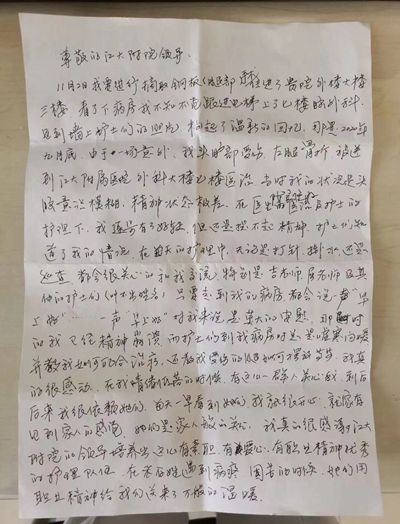 尊敬的江大附院领导:
11月2日我要进行摘取钢板(腿部)住进了贵院外楼大楼
三楼 看了下病房我不知不觉跟进电梯上了七楼脑外科
见到墙上护士们的照片 勾起了温新的回忆 那是2020年
九月底 由于一场意外 我头脑部受伤 左腿骨折 被送
到江大附属医院 外科大楼七楼医治 当时我的状况是头
脑意识模糊 精神状态极差 在医生 及护士的
护理下 我逐步有了好转 但还是提不起精神 护士们知
道了我的情况 在每天的护理中 无论是打针 挂水还是
巡查 都会很关心的和我交流 特别是吉老师 居老师及其
他的护士们(叫不出姓名) 只要走到我的病房都会说:"早
上好" 一声"早上好"对我来说是莫大的安慰 那时
的我 已经精神崩溃 而护士们到我病房时是嘘寒问暖
并教我如何配合治疗 还教我受伤的腿如何摆放等等 我真
的很感动 在我情绪低落的时候 有这么一群人关心我 到后
后来我很依赖她们 每天一早看到她们 我就很开心 就像有
见到家人的感觉 她们是家人般的关心 我真的很感谢江大
附院的领导培养出这么有素职 有爱心 有职业精神优秀
的护理队伍 在老百姓遇到病痛 困苦的时候 她们用
职业精神给我们送来了万般的温暖